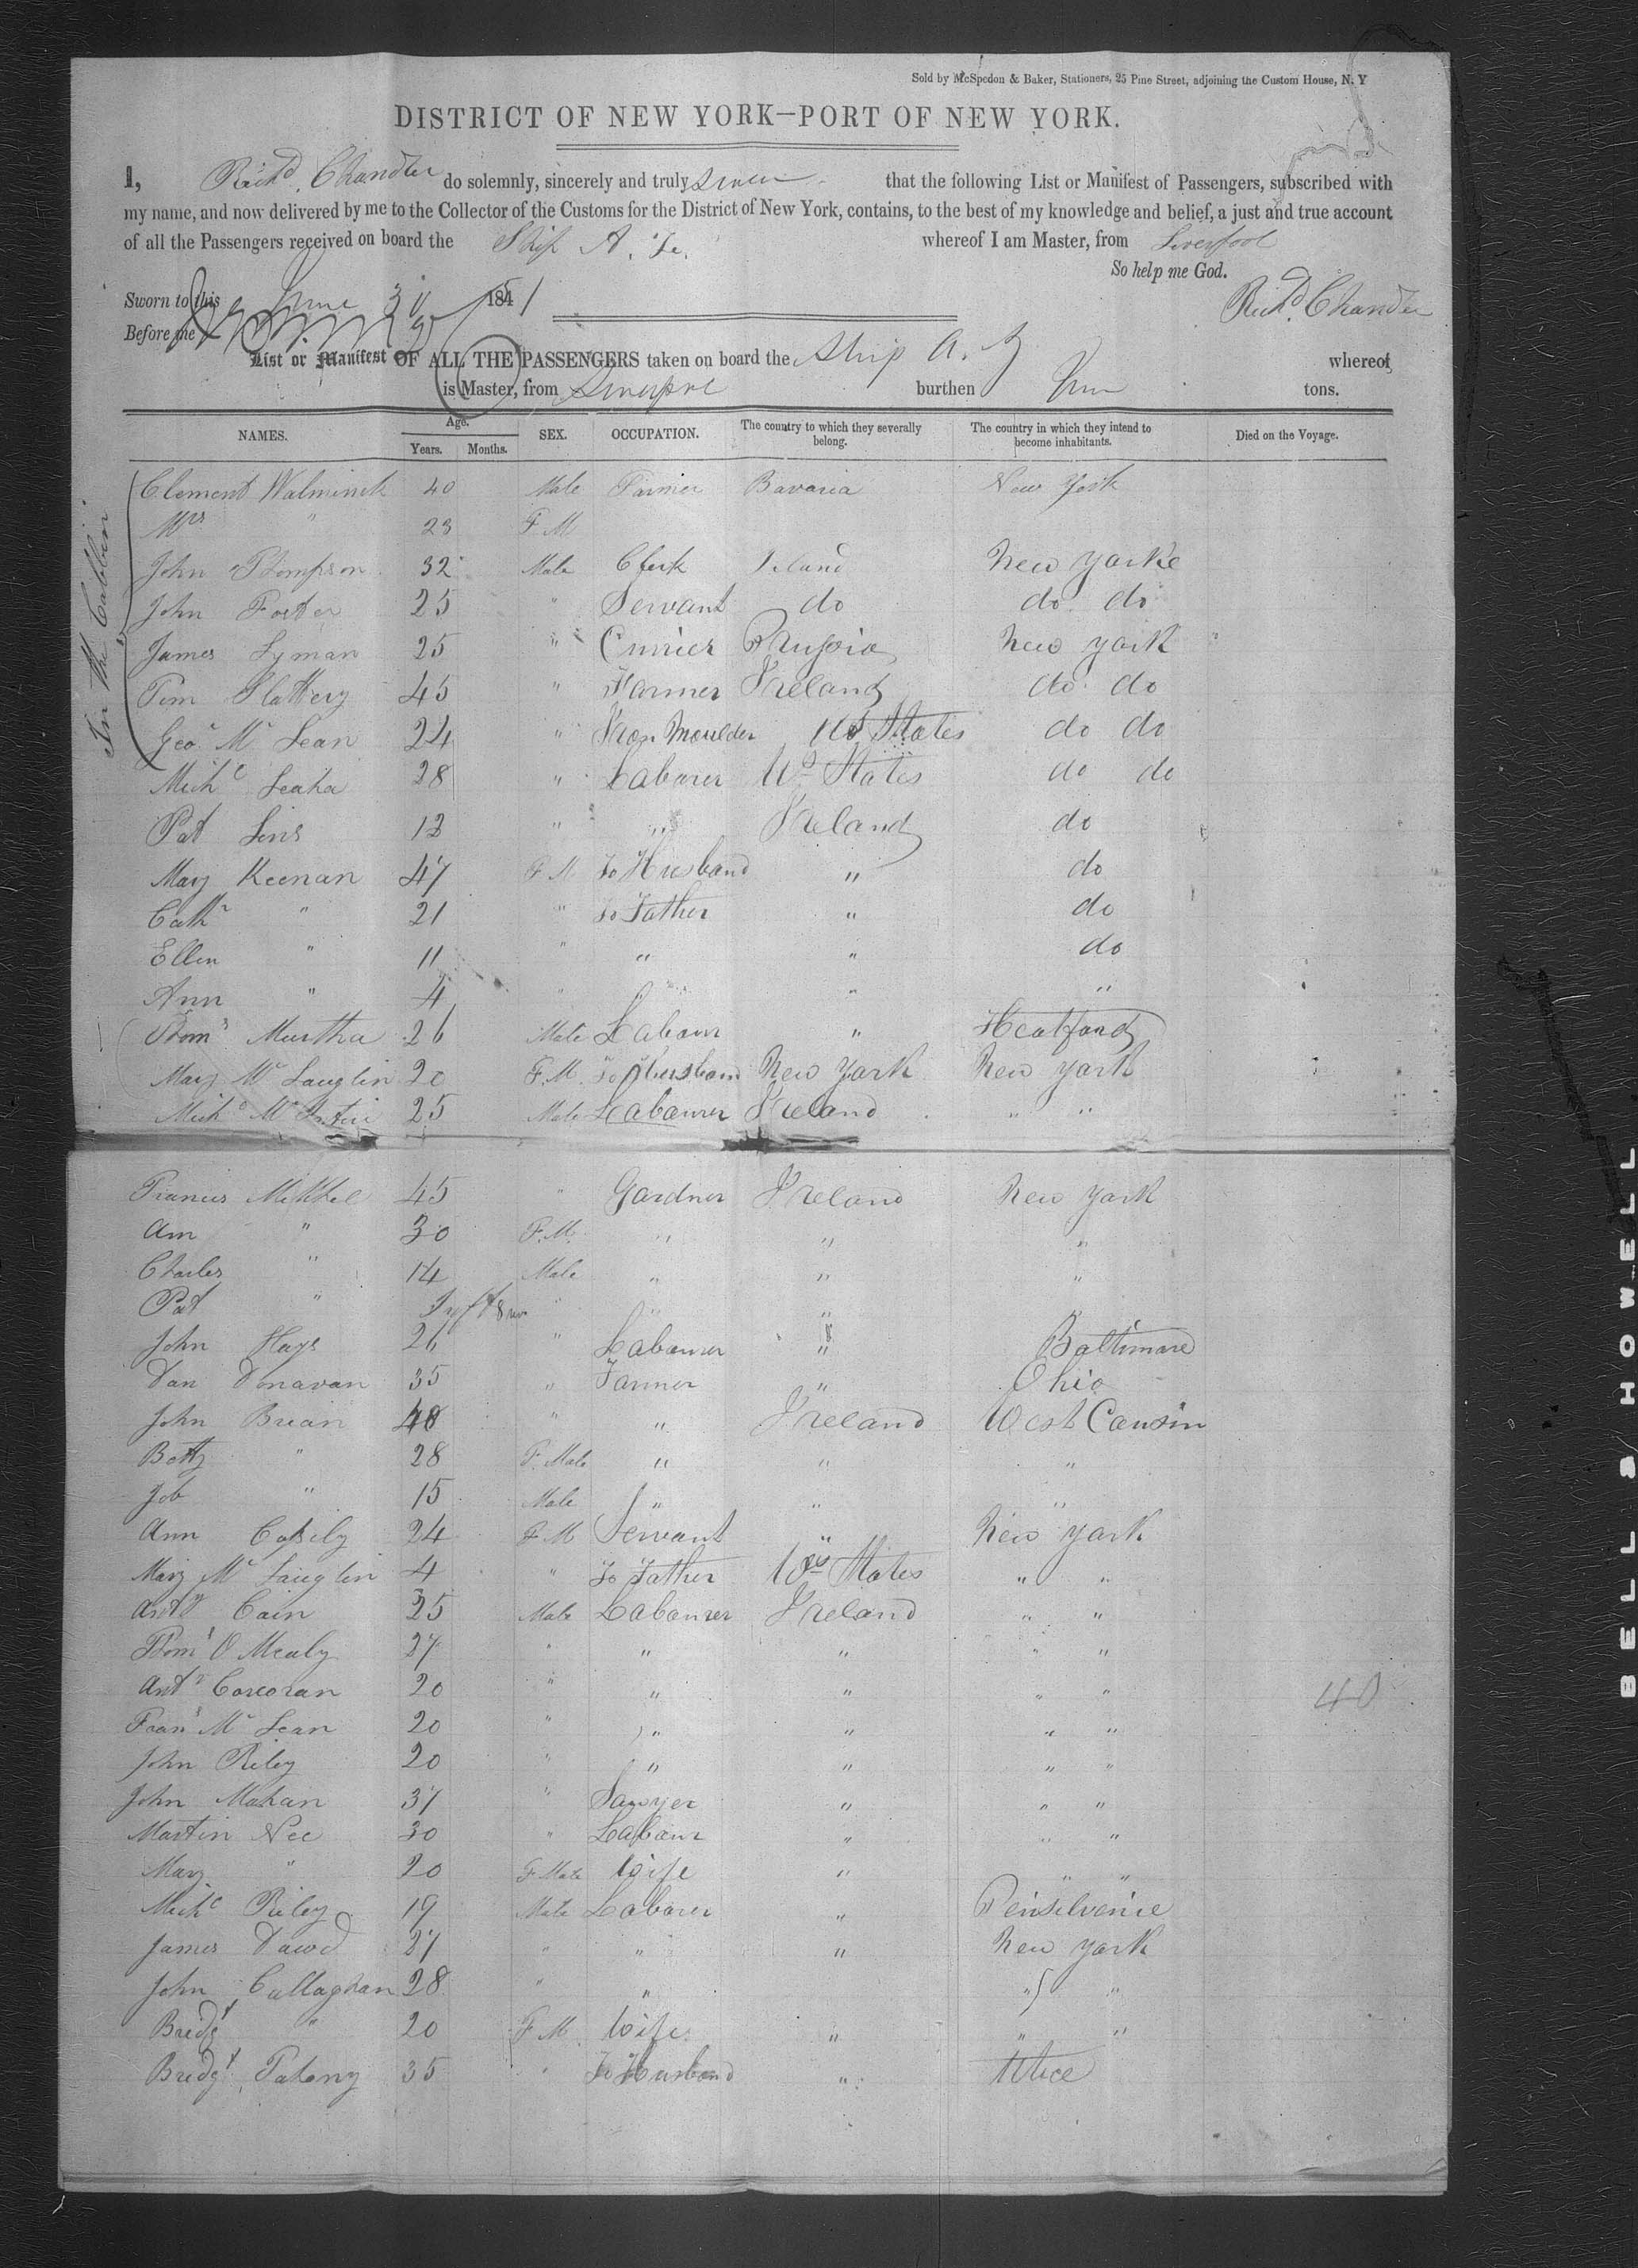 Sold by McSpedon & Baker, Stationers, 25 Pine Street, adjoining the Custom House, N. Y
DISTRICT OF NEW YORK—PORT OF NEW YORK.
I, Richd. Chandler do solemnly, sincerely and truly swear that the following List or Manifest of Passengers, subscribed with
my name, and now delivered by me to the Collector of the Customs for the District of New York, contains, to the best of my knowledge and belief, a just and true account
of all the Passengers received on board the Ship A. Z. whereof I am Master, from Liverpool
So help me God.
Sworn to this June 30 1851 Richd. Chandler
Before me
List or Manifest OF ALL THE PASSENGERS taken on board the Ship A. Z whereof
is Master, from Liverpool burthen tons.
NAMES. Age. Years. Months. SEX. OCCUPATION. The country to which they severally belong. The country in which they intend to become inhabitants. Died on the Voyage.
In the Cabbin
Clement Walminck 40 Male Farmer Bavaria New York
Mrs " 23 F. M
John Thompson 32 Male Clerk Ireland New Yorke
John Foster 25 " Servant do do do
James Lyman 25 " Currier Prussia New York
Tim Slattery 45 " Farmer Ireland do do
Geo Mc Lean 24 " Iron Moulder Ud States do do
Michl Leaha 28 " Laborer Ud States do do
Pat Lins 13 " " Ireland do
Mary Keenan 47 F M To Husband " do
Cathr " 21 " To Father " do
Ellen " 11 " " " do
Ann " 4 " " " "
Thoms Murtha 26 Male Labour " Heatford
Mary Mc Lauglin 20 F. M. To Husband New York New York
Michl Mc 25 Male Labourer Ireland " "
Francis Mitchel 45 " Gardner Ireland New York
Ann " 30 F. M. " " "
Charles " 14 Male " " "
Pat " " " "
John Hays 26 " Labourer " Baltimore
Dan Donavan 35 " Farmer " Ohio
John Brian 48 " " Ireland West Cousin
Betty " 28 F. Male " " "
Job " 15 Male " " "
Ann Cassily 24 F M Servant " New York
Mary Mc Lauglin 4 " To Father Ud States " "
Anty Cain 25 Male Labourer Ireland " "
Thoms O Mealy 27 " " " " "
Anty Corcoran 20 " " " " "
Frans Mc Lean 20 " " " " "
John Riley 20 " " " " "
John Mahan 37 " Sawyer " " "
Martin Nee 30 " Labour " " "
Mary " 20 F Male Wife " " "
Michl Riley 19 Male Laborer " Penselvenie
James Dawd 27 " " " New York
John Callaghan 28 " " " "
Bredgt " 20 F M Wife " " "
Bredgt 35 " To Husband " Utice
40
BELL & HOWELL